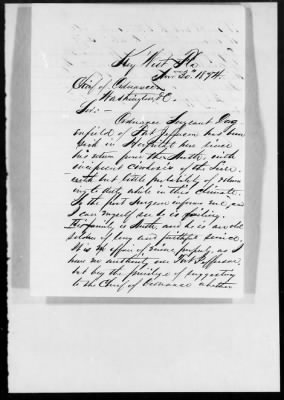 Key West Fla
Jan 30th 1874.
Chief of Ordnance
Washington D.C.
Sir:-
Ordnance Sergeant
of Fort Jefferson has been
Sick in Hospital here since
his return from the North, with
incipient cirrhosis of the liver
with but little probability of return
ing to duty while in this climate.
So the post Surgeon informs me, and
I can myself see he is failing.
His family is North, and he is an old
soldier of long and faithful service.
It is no affair of mine properly, as I
have no authority over Fort Jefferson,
but beg the privilege of suggesting
to the Chief of Ordnance whether